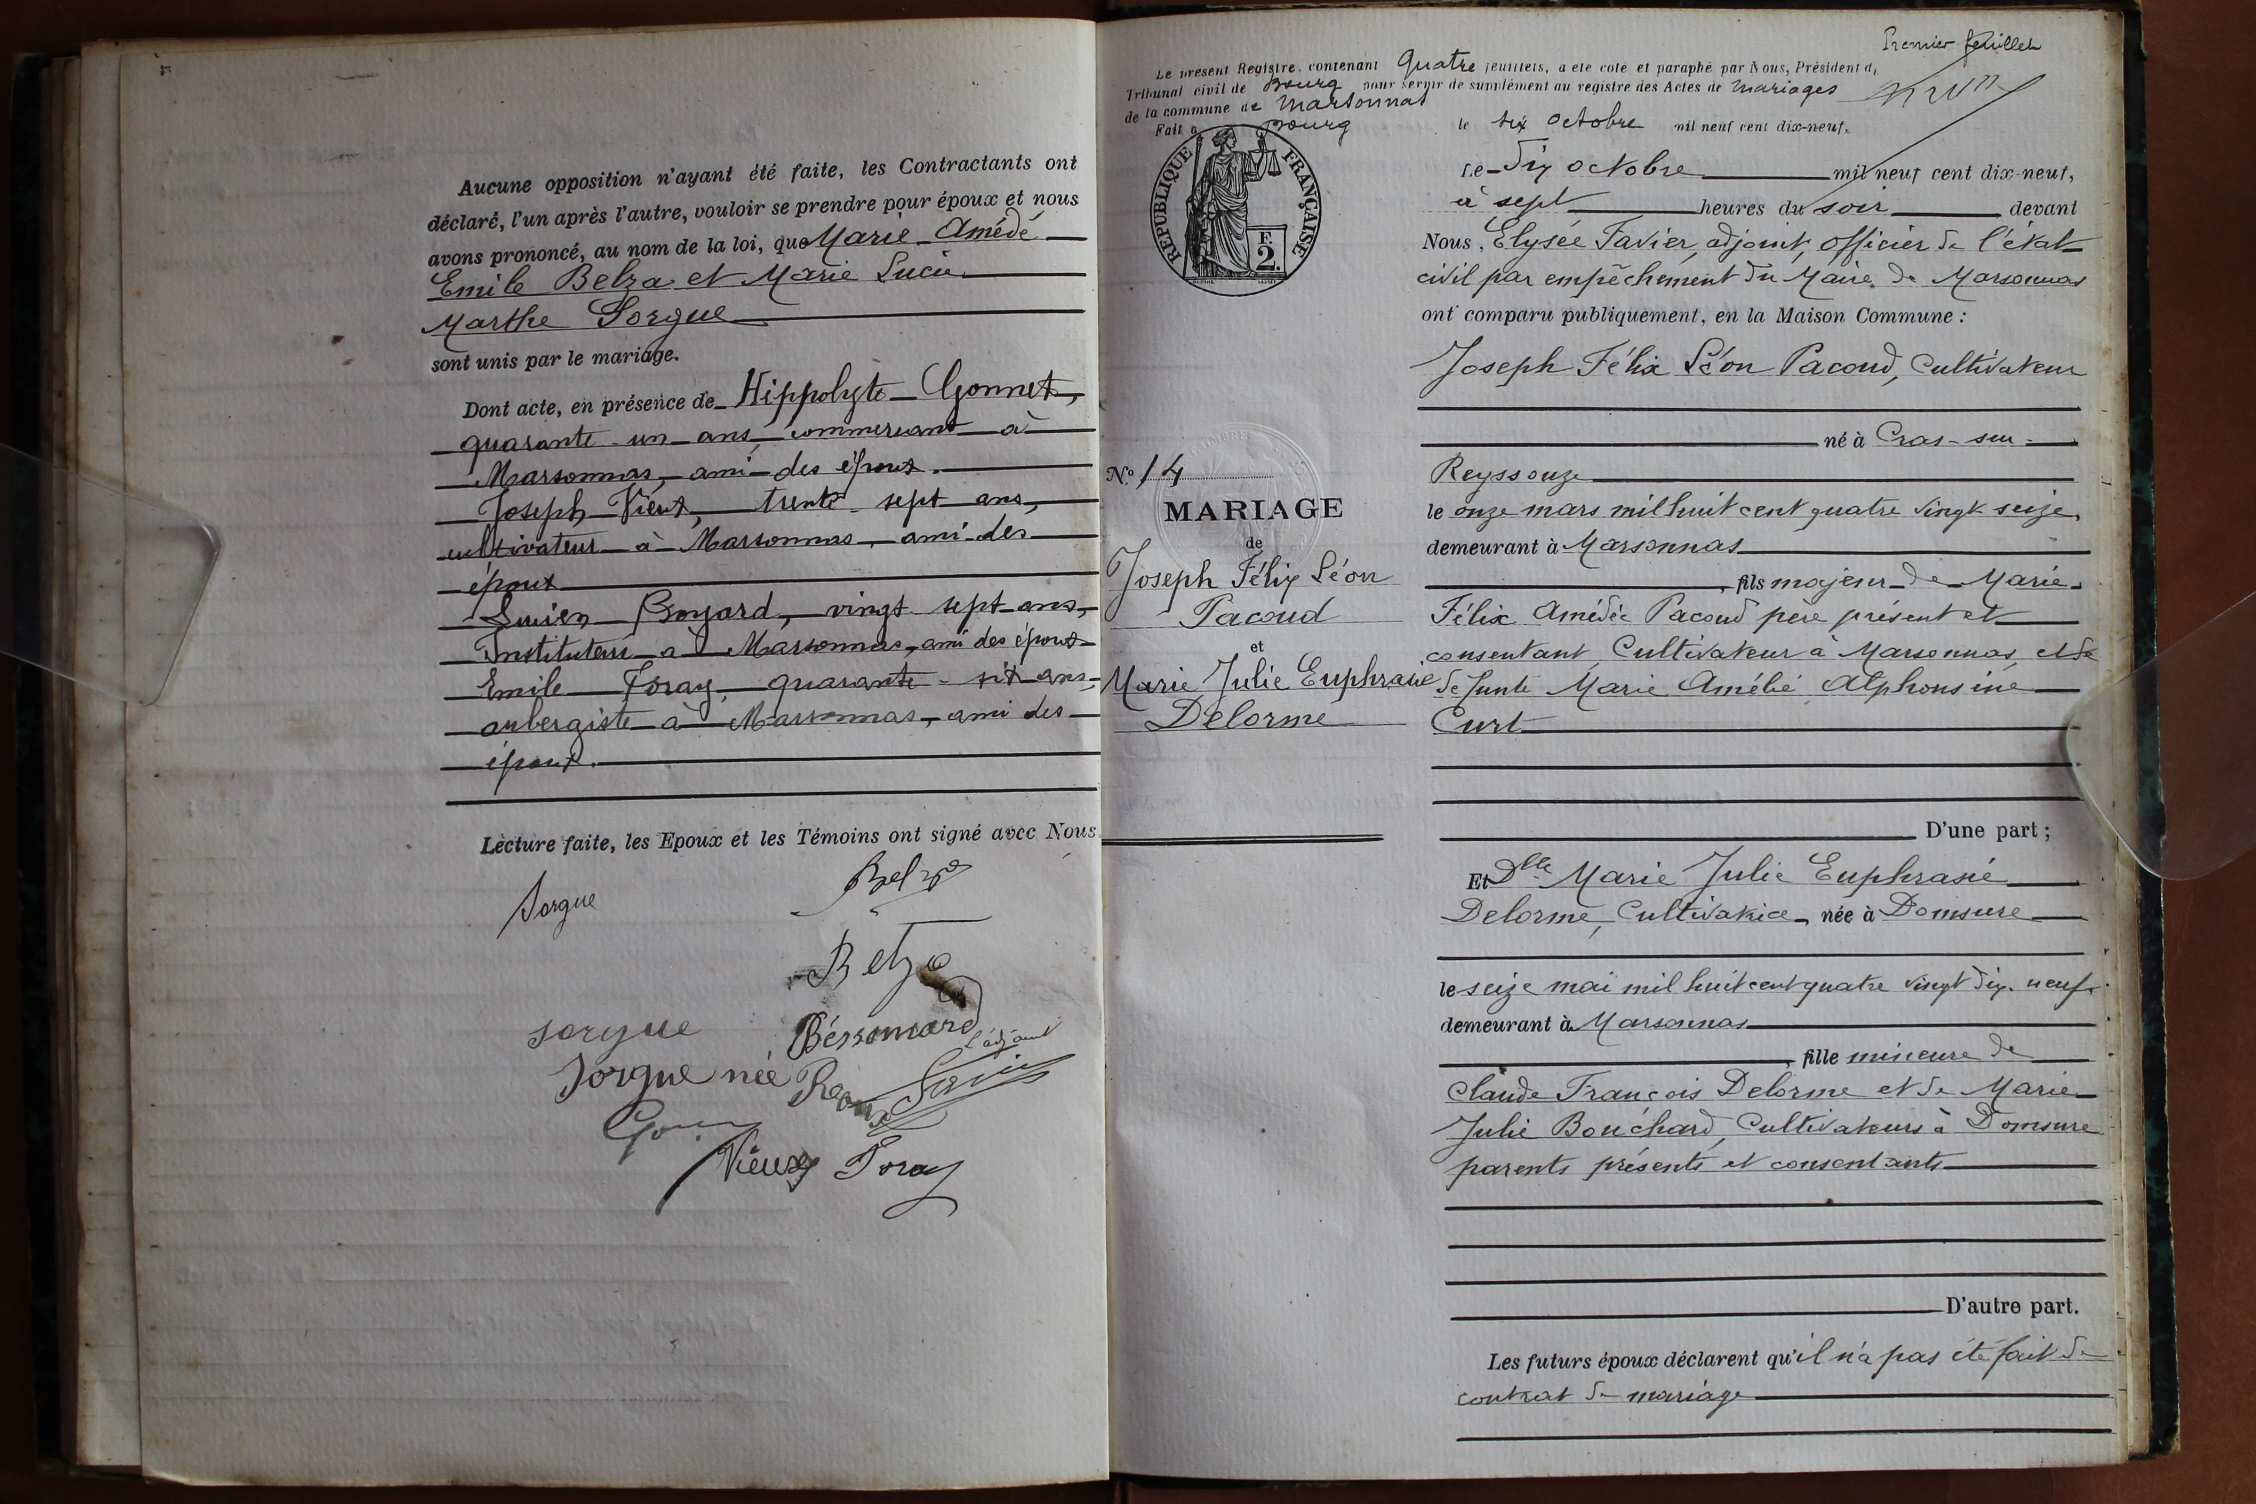 Aucune opposition n'ayant été faite, les Contractants ont
déclaré, l'un après l'autre, vouloir se prendre pour époux et nous
avons prononcé, au nom de la loi, que Marie Amédé
Emile Belza et Marie Lucie
Marthe Sorgue
sont unis par le mariage.
Dont acte, en présence de Hippolyte Gonnet,
quarante un ans, commerçant à
Marsonnas, ami des époux.
Joseph Vieux, trente sept ans,
cultivateur à Marsonnas, ami des
époux
Lucien Boyard, vingt sept ans,
Instituteur à Marsonnas, ami des époux
Emile Foray, quarante six ans,
aubergiste à Marsonnas, ami des
époux.
Lecture faite, les Epoux et les Témoins ont signé avec Nous
Sorgue Belza
Belza
Sorgue
l'adjoint
Sorgue née
Vieux Foray
Premier feuillet
Le présent Registre, contenant Quatre feuillets, a été coté et paraphé par Nous, Président d
Tribunal civil de Bourg pour servir de supplément au registre des Actes de Mariages
de la commune de Marsonnas
Fait à Bourg le six Octobre mil neuf cent dix-neuf.
REPUBLIQUE FRANÇAISE
F.
2.
Le Dix octobre mil neuf cent dix-neuf,
à sept heures du soir devant
Nous, Elysée Favier, adjoint, officier de l'état
civil par empêchement du Maire de Marsonnas
ont comparu publiquement, en la Maison Commune :
Joseph Félix Léon Pacoud, Cultivateur
né à Cras-sur-
Reyssouze
le onze mars mil huit cent quatre vingt seize,
demeurant à Marsonnas
, fils majeur de Marie
Félix Amédée Pacoud père présent et
consentant, Cultivateur à Marsonnas et de
defunte Marie Amélie Alphonsine
Curt
D'une part ;
N.º 14
MARIAGE
de
Joseph Félix Léon
Pacoud
et
Marie Julie Euphrasie
Delorme
Et Dlle Marie Julie Euphrasie
Delorme, Cultivatrice, née à Domsure
le seize mai mil huit cent quatre vingt dix-neuf
demeurant à Marsonnas
, fille mineure de
Claude François Delorme et de Marie
Julie Bouchard, Cultivateurs à Domsure
parents présents et consentants
D'autre part.
Les futurs époux déclarent qu'il n'a pas été fait de
contrat de mariage